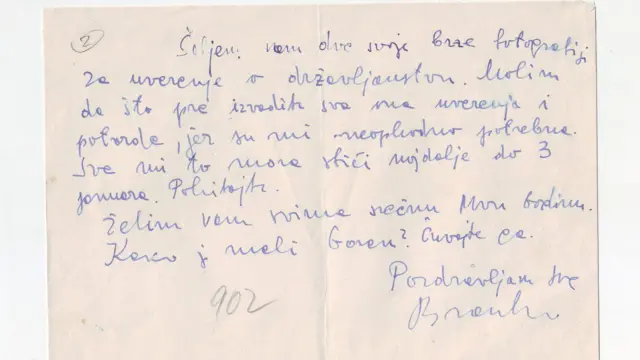 2
Šaljem vam dve svoje brze fotografije
za uverenje o državljanstvu. Molim
da što pre izvadite sva ma uverenja i
potvrde, jer su mi neophodno potrebna.
Sve mi to mora stići najdalje do 3
januara. Pohitajte.
Želim vam svima srećnu Novu Godinu.
Kako j mali Goran? Čuvajte ga.
Pozdravljam sve
Branko
902